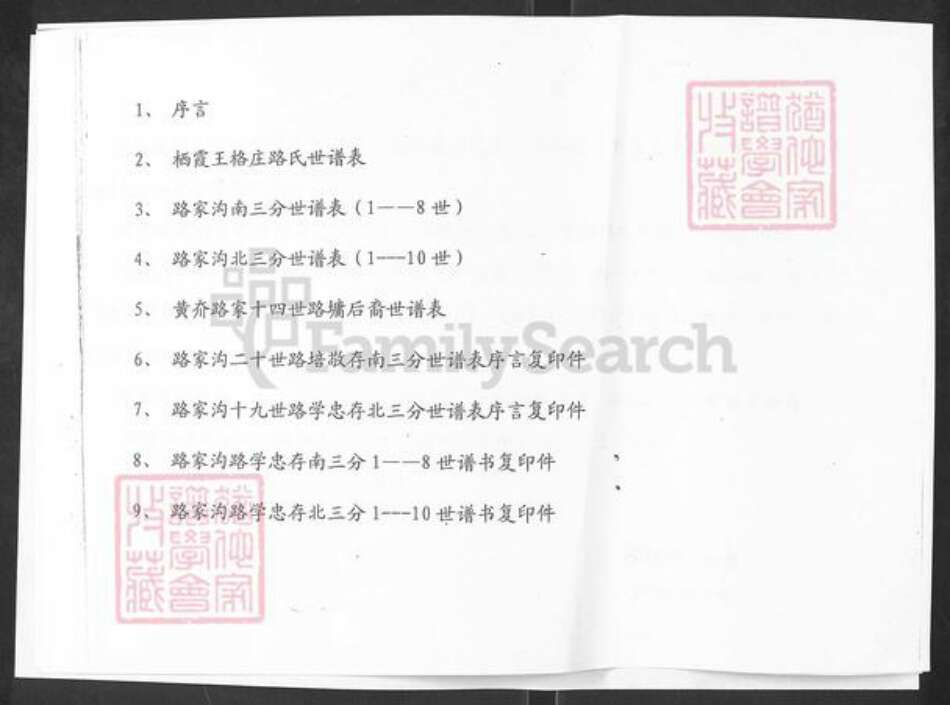 1、 序言
2、 栖霞王格庄路氏世谱表
3、 路家沟南三分世谱表（1——8 世）
4、 路家沟北三分世谱表（1---10 世）
5、 黄夼路家十四世路墉后裔世谱表
6、 路家沟二十世路培敞存南三分世谱表序言复印件
7、 路家沟十九世路学忠存北三分世谱表序言复印件
8、 路家沟路学忠存南三分 1——8 世谱书复印件
9、 路家沟路学忠存北三分 1---10 世谱书复印件
FamilySearch